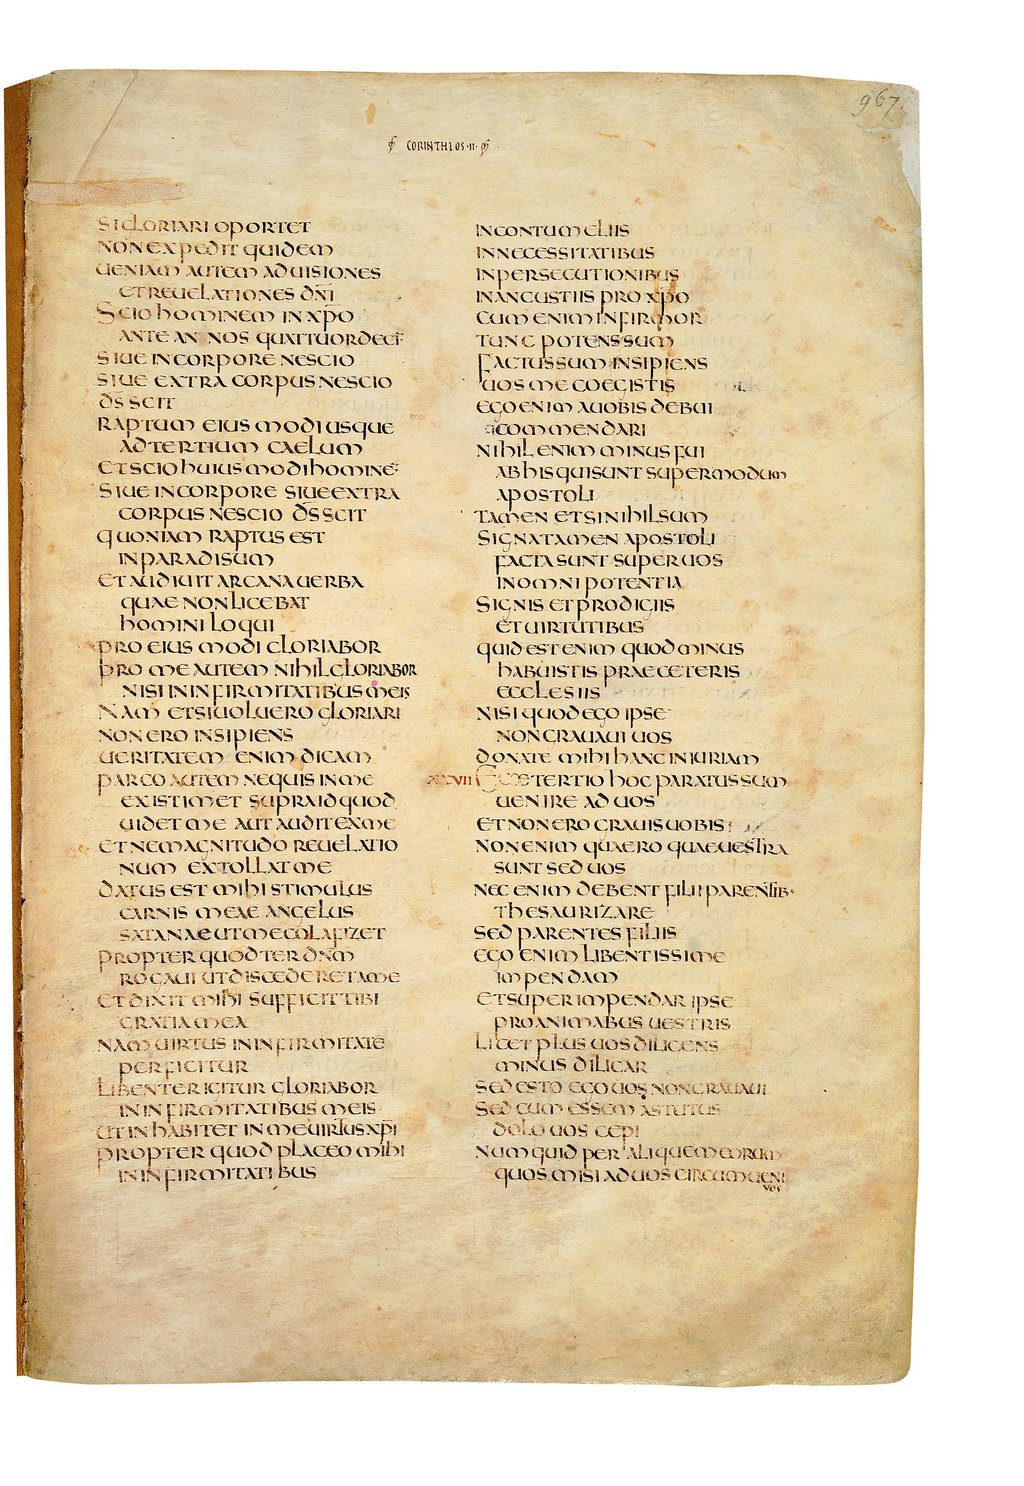 967
CORINTHIOS·II·
SI GLORIARI OPORTET
NON EXPEDIT QUIDEM
UENIAM AUTEM AD UISIONES
ET REUELATIONES DN̄I
SCIO HOMINEM IN XP̄O
ANTE ANNOS QUATTUORDECI-
SIUE IN CORPORE NESCIO
SIUE EXTRA CORPUS NESCIO
DS̄ SCIT
RAPTUM EIUSMODI USQUE
AD TERTIUM CAELUM
ET SCIO HUIUSMODI HOMINE-
SIUE IN CORPORE SIUE EXTRA
CORPUS NESCIO DS̄ SCIT
QUONIAM RAPTUS EST
IN PARADISUM
ET AUDIUIT ARCANA UERBA
QUAE NON LICEBAT
HOMINI LOQUI
PRO EIUSMODI GLORIABOR
PRO ME AUTEM NIHIL GLORIABOR
NISI IN INFIRMITATIBUS MEIS
NAM ET SI UOLUERO GLORIARI
NON ERO INSIPIENS
UERITATEM ENIM DICAM
PARCO AUTEM NE QUIS IN ME
EXISTIMET SUPRA ID QUOD
UIDET ME AUT AUDIT EX ME
ET NE MAGNITUDO REUELATIO
NUM EXTOLLAT ME
DATUS EST MIHI STIMULUS
CARNIS MEAE ANGELUS
SATANAE UT ME COLAFIZET
PROPTER QUOD TER DN̄M
ROGAUI UT DISCEDERET A ME
ET DIXIT MIHI SUFFICIT TIBI
GRATIA MEA
NAM UIRTUS IN INFIRMITATE
PERFICITUR
LIBENTER IGITUR GLORIABOR
IN INFIRMITATIBUS MEIS
UT INHABITET IN ME UIRTUS XP̄I
PROPTER QUOD PLACEO MIHI
IN INFIRMITATIBUS
IN CONTUMELIIS
IN NECESSITATIBUS
IN PERSECUTIONIBUS
IN ANGUSTIIS PRO XP̄O
CUM ENIM INFIRMOR
TUNC POTENS SUM
FACTUS SUM INSIPIENS
UOS ME COEGISTIS
EGO ENIM A UOBIS DEBUI
COMMENDARI
NIHIL ENIM MINUS FUI
AB HIS QUI SUNT SUPER MODUM
APOSTOLI
TAMEN ETSI NIHIL SUM
SIGNA TAMEN APOSTOLI
FACTA SUNT SUPER UOS
IN OMNI POTENTIA
SIGNIS ET PRODIGIIS
ET UIRTUTIBUS
QUID EST ENIM QUOD MINUS
HABUISTIS PRAE CETERIS
ECCLESIIS
NISI QUOD EGO IPSE
NON GRAUAUI UOS
DONATE MIHI HANC INIURIAM
ECCE TERTIO HOC PARATUS SUM
UENIRE AD UOS
ET NON ERO GRAUIS UOBIS
NON ENIM QUAERO QUAE UESTRA
SUNT SED UOS
NEC ENIM DEBENT FILII PARENTIB·
THESAURIZARE
SED PARENTES FILIIS
EGO ENIM LIBENTISSIME
IMPENDAM
ET SUPERIMPENDAR IPSE
PRO ANIMABUS UESTRIS
LICET PLUS UOS DILIGENS
MINUS DILIGAR
SED ESTO EGO UOS NON GRAUAUI
SED CUM ESSEM ASTUTUS
DOLO UOS CEPI
NUMQUID PER ALIQUEM EORUM
QUOS MISI AD UOS CIRCUMUENI
VOS